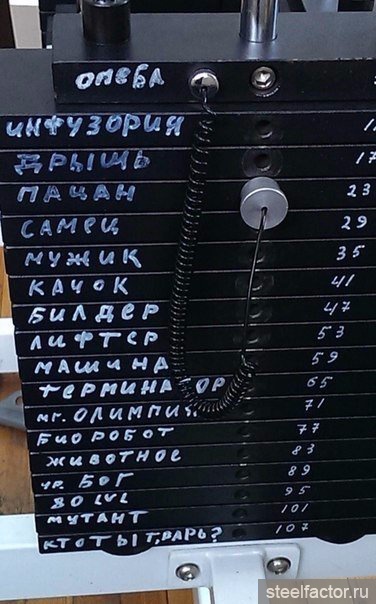 АМЕБА
ИНФУЗОРИЯ
ДРЫЩЬ 17
ПАЦАН 23
САМЕЦ 29
МУЖИК 35
КАЧОК 41
БИЛДЕР 47
ЛИФТЕР 53
МАШИНА 59
ТЕРМИНАТОР 65
мг. ОЛИМПИЯ 71
БИОРОБОТ 77
ЖИВОТНОЕ 83
ур. БОГ 89
80 LVL 95
МУТАНТ 101
КТО ТЫ, ТВАРЬ? 107
steelfactor.ru